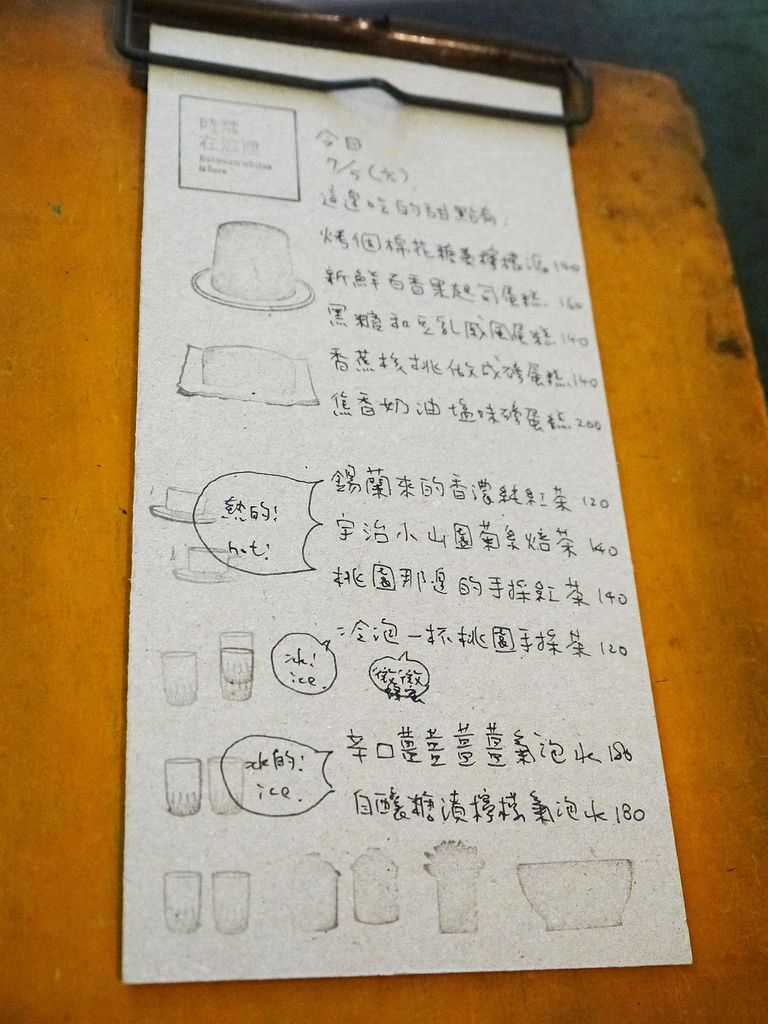 時常
在這裡
Between whiles
is here
今日
7/5(六)
這邊吃的甜點有:
烤個棉花糖蓋檸檬派 140
新鮮百香果起司蛋糕 160
黑糖和豆乳戚風蛋糕 140
香蕉核桃做成磅蛋糕 140
焦香奶油塩味磅蛋糕 200
熱的!
hot!
錫蘭來的香濃純紅茶 120
宇治小山園菊系焙茶 140
桃園那邊的手採紅茶 140
冰!
ice.
冷泡一杯桃園手採茶 120
微微
蜂蜜
冰的!
ice.
辛口薑薑薑薑氣泡水 180
自釀糖漬檸檬氣泡水 180